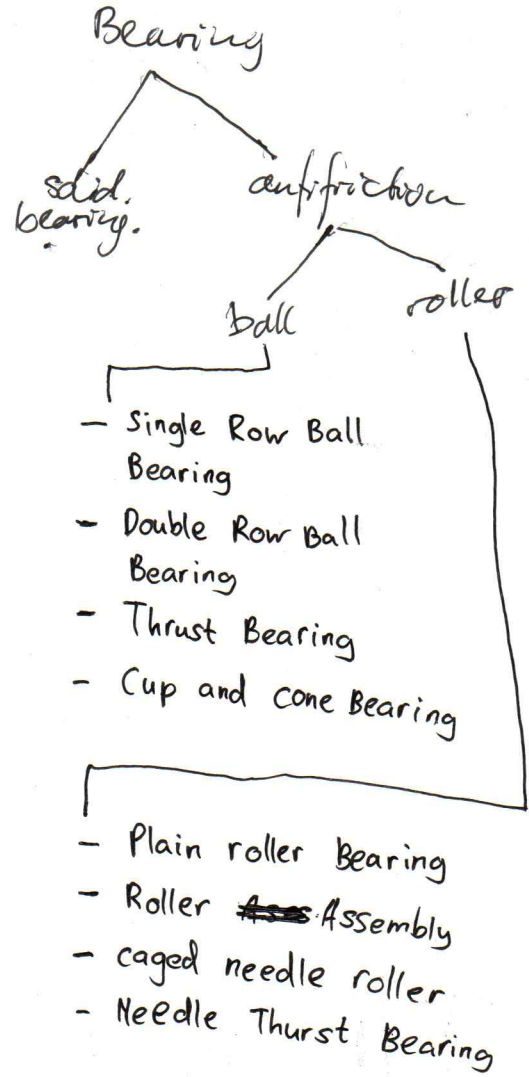 Bearing
solid.
bearing.
antifriction
ball
roller
- Single Row Ball
Bearing
- Double Row Ball
Bearing
- Thrust Bearing
- Cup and cone Bearing
- Plain roller Bearing
- Roller Assembly
- caged needle roller
- Needle Thurst Bearing